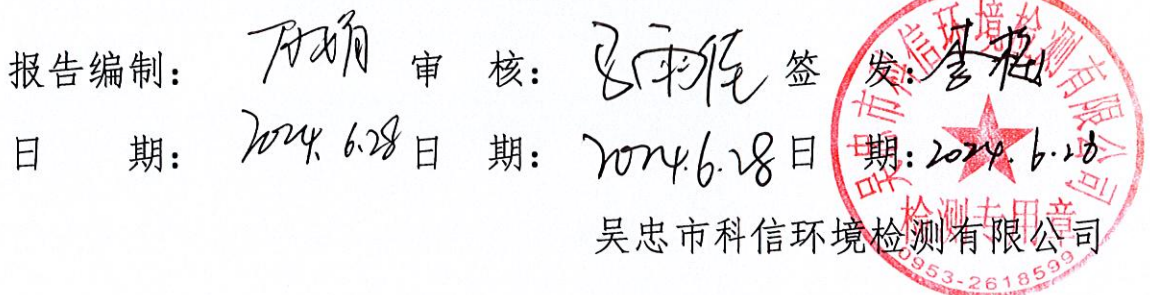 报告编制： 审 核： 签 发：李梅
日 期：2024.6.28 日 期：2024.6.28 日 期：2024.6.28
吴忠市科信环境检测有限公司
吴忠市科信环境检测有限公司
检测专用章
0953-2618599